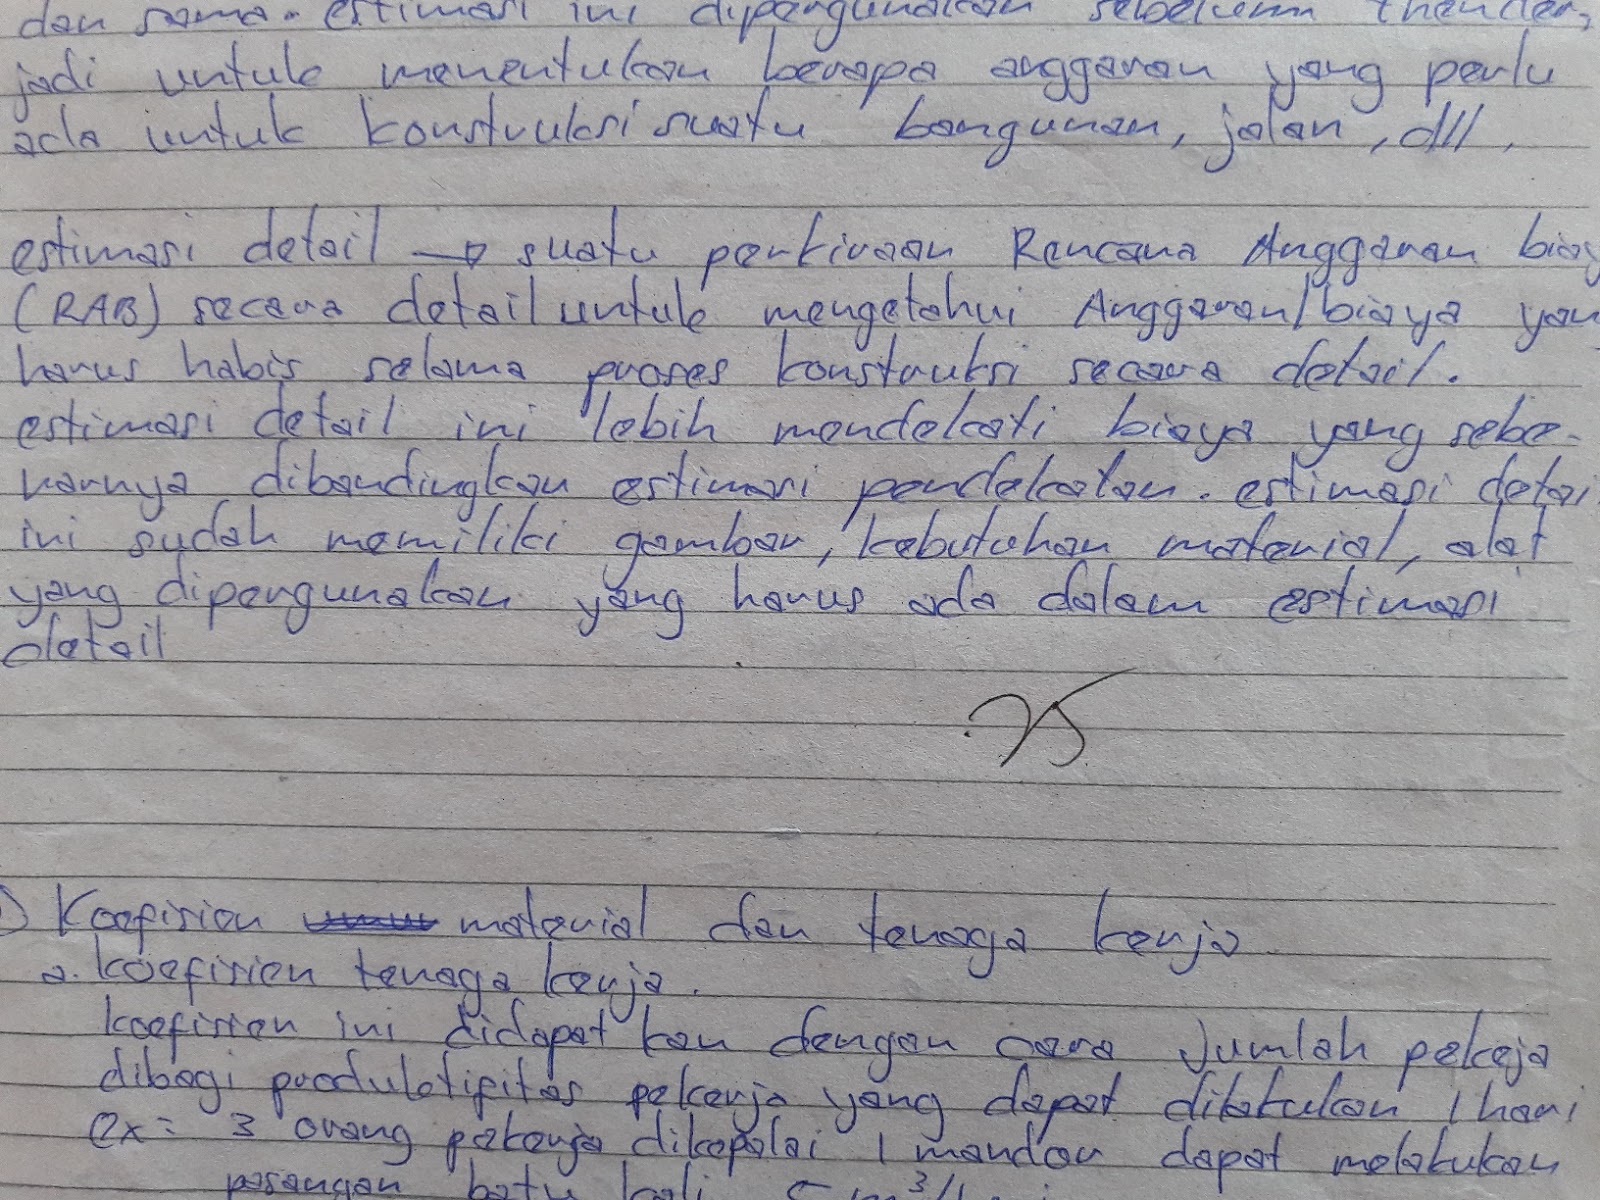 dan sama. estimasi ini dipergunakan sebelum thender,
jadi untuk menentukan berapa anggaran yang perlu
ada untuk konstruksi suatu bangunan, jalan, dll,
estimasi detail → suatu perkiraan Rencana Anggaran biay
(RAB) secara detail untuk mengetahui Anggaran/biaya yan
harus habis selama proses konstruksi secara detail.
estimasi detail ini lebih mendekati biaya yang sebe-
narnya dibandingkan estimasi pendekatan. estimasi detai
ini sudah memiliki gambar, kebutuhan material, alat
yang dipergunakan yang harus ada dalam estimasi
detail
) Koefisien material dan tenaga kerja
a. koefisien tenaga kerja.
koefisien ini didapat kan dengan cara Jumlah pekeja
dibagi produktifitas pekerja yang dapat dilakukan 1 hari
ex = 3 orang pekerja dikepalai 1 mandor dapat melakukan
pasangan batu kali